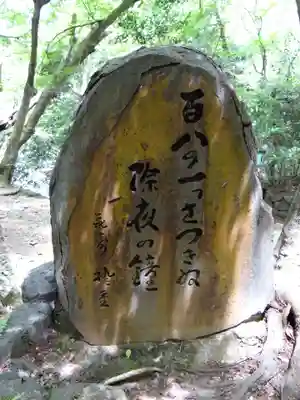 百八の一つさつきぬ
除夜の鐘